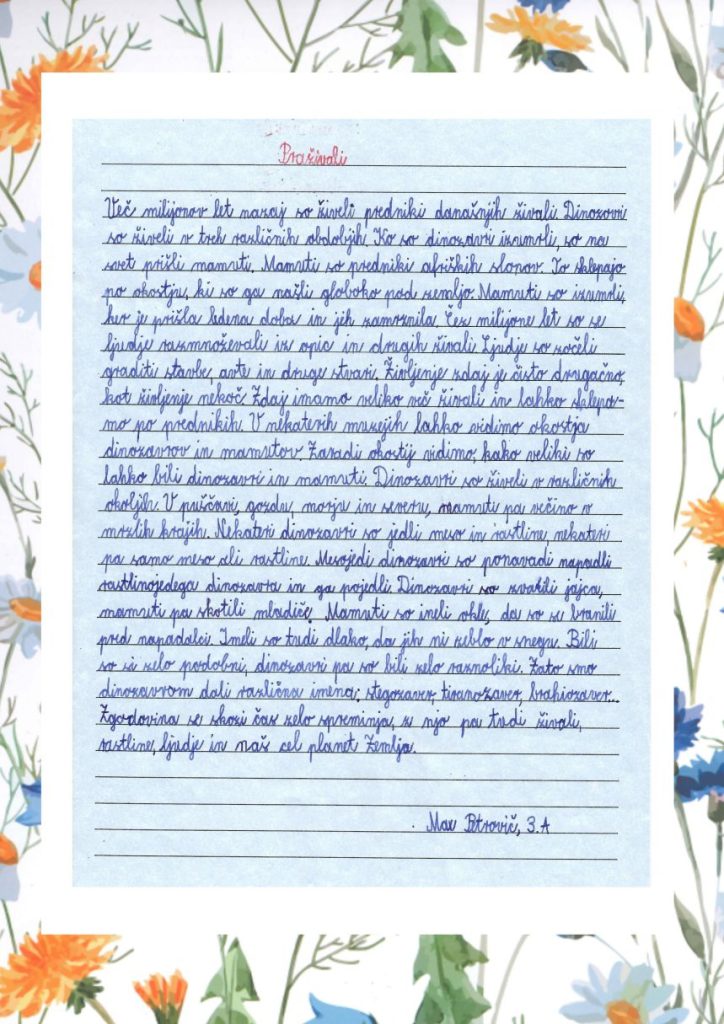 Praživali
Več milijonov let nazaj so živeli predniki današnjih živali. Dinozavri
so živeli v treh različnih obdobjih. Ko so dinozavri izumrli, so na
svet prišli mamuti. Mamuti so predniki afriških slonov. To sklepajo
po okostju, ki so ga našli globoko pod zemljo. Mamuti so izumrli,
ker je prišla ledena doba in jih zamrznila. Čez milijone let so se
ljudje razmnoževali iz opic in drugih živali. Ljudje so začeli
graditi stavbe, avte in druge stvari. Življenje zdaj je čisto drugačno,
kot življenje nekoč. Zdaj imamo veliko več živali in lahko sklepa-
mo po prednikih. V nekaterih muzejih lahko vidimo okostja
dinozavrov in mamutov. Zaradi okostij vidimo, kako veliki so
lahko bili dinozavri in mamuti. Dinozavri so živeli v različnih
okoljih. V puščavi, gozdu, morju in severu, mamuti pa večino v
mrzlih krajih. Nekateri dinozavri so jedli meso in rastline, nekateri
pa samo meso ali rastline. Mesojedi dinozavri so ponavadi napadli
rastlinojedega dinozavra in ga pojedli. Dinozavri so zvalili jajca,
mamuti pa skotili mladiče. Mamuti so imeli okle, da so se branili
pred napadalci. Imeli so tudi dlako, da jih ni zeblo v snegu. Bili
so si zelo podobni, dinozavri pa so bili zelo raznoliki. Zato smo
dinozavrom dali različna imena: stegozaver, tiranozaver, brahiozaver...
Zgodovina se skozi čas zelo spreminja, z njo pa tudi živali,
rastline, ljudje in naš cel planet Zemlja.
Max Petrovič, 3.A